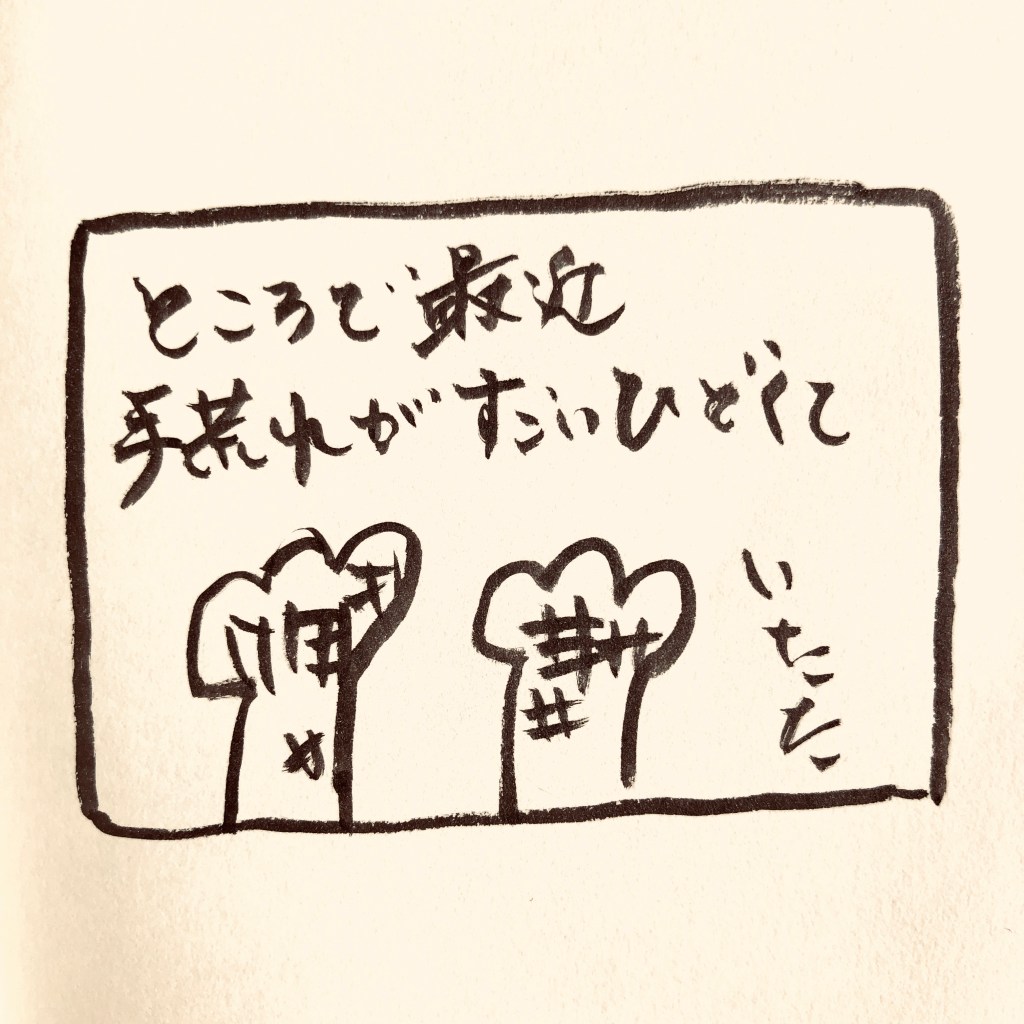 ところで最近
手荒れがすごいひどくて
いたた